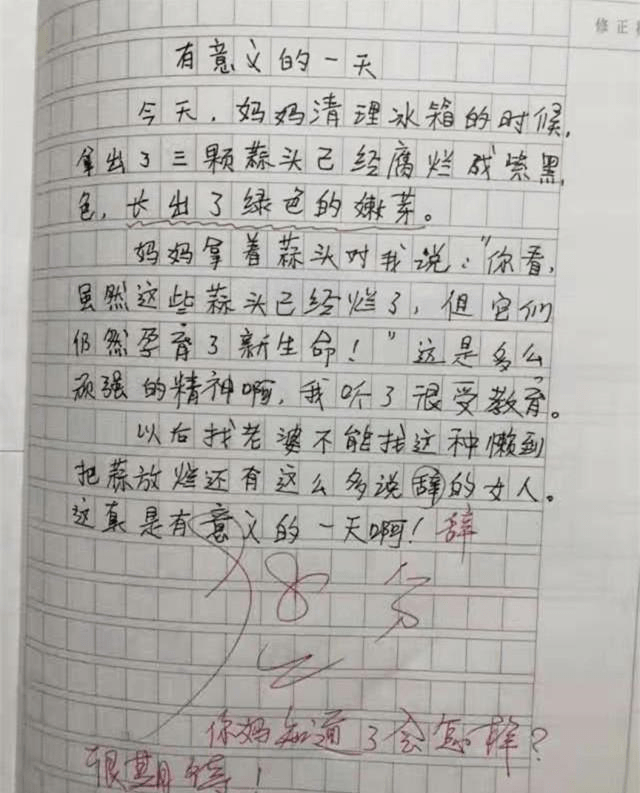 修正
有意义的一天
今天，妈妈清理冰箱的时候，
拿出了三颗蒜头已经腐烂成紫黑
色，长出了绿色的嫩芽。
妈妈拿着蒜头对我说："你看，
虽然这些蒜头已经烂了，但它们
仍然孕育了新生命！"这是多么
顽强的精神啊，我听了很受教育。
以后找老婆不能找这种懒到
把蒜放烂还有这么多说辞的女人。
这真是有意义的一天啊！辞
你妈知道了会怎样？
很期待！